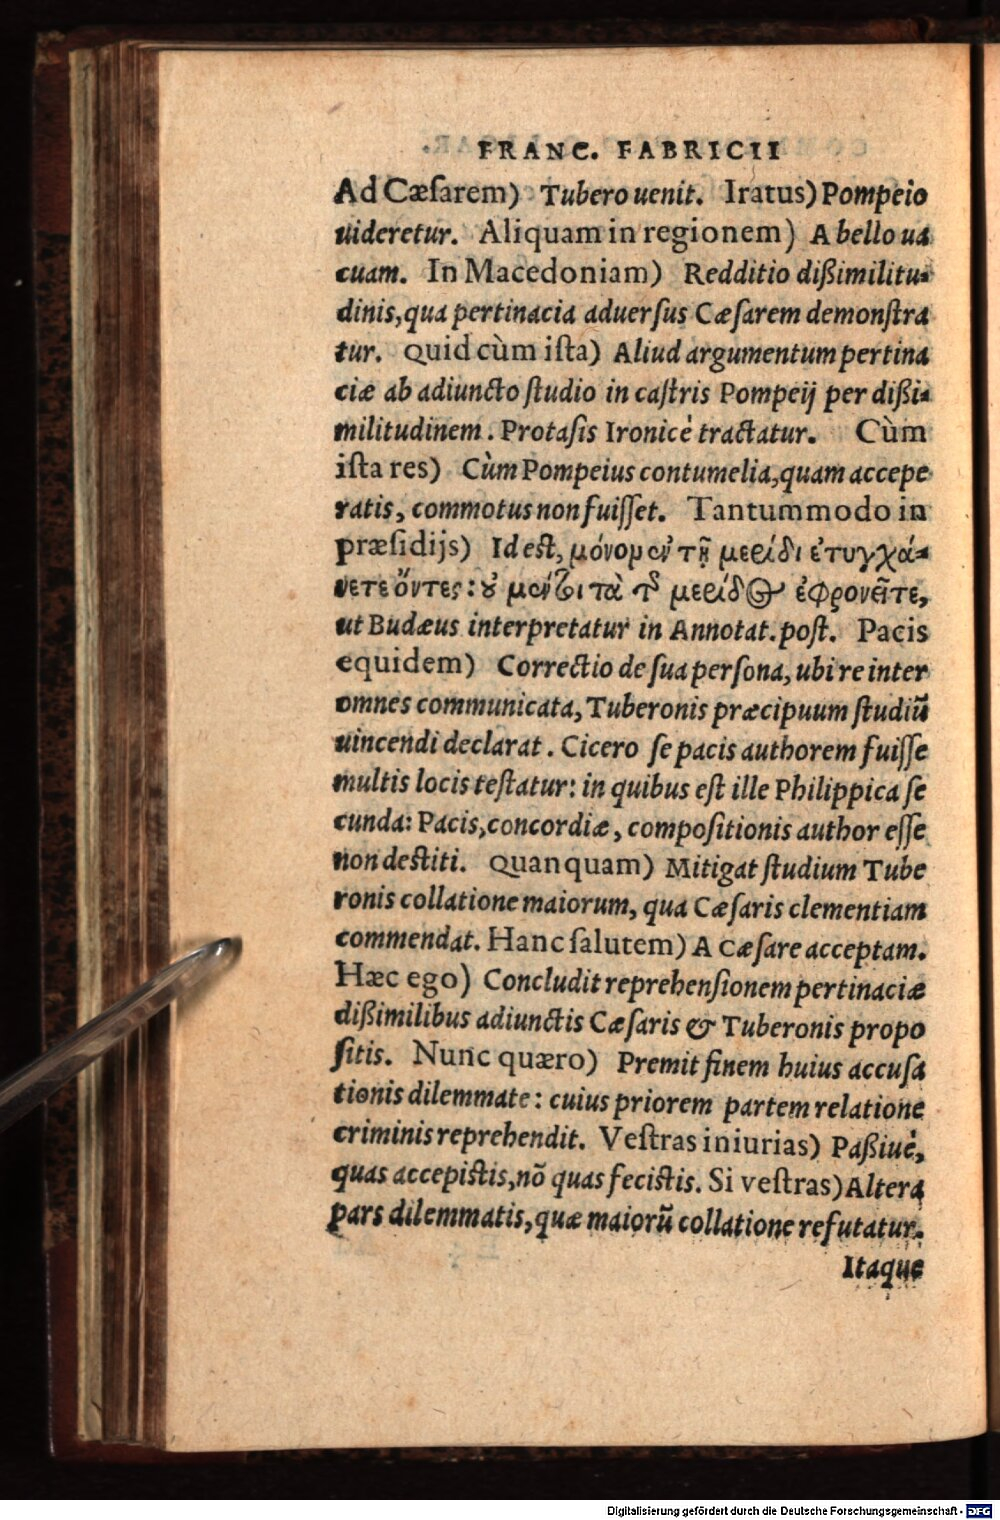 FRANC. FABRICII
Ad Cæſarem) Tubero uenit. Iratus) Pompeio
uideretur. Aliquam in regionem) A bello ua
cuam. In Macedoniam) Redditio dißimilitu-
dinis, qua pertinacia aduerſus Cæſarem demonſtra
tur. Quid cùm iſta) Aliud argumentum pertina
ciæ ab adiuncto ſtudio in caſtris Pompeij per dißi-
militudinem. Protaſis Ironicè tractatur. Cùm
iſta res) Cùm Pompeius contumelia, quam accepe
ratis, commotus non fuiſſet. Tantummodo in
præſidijs) Id eſt, μόνον ἐν τῇ μερίδι ἐτυγχά-
νετε ὄντες: οὐ μέντοι τὰ τῆς μερίδος ἐφρονεῖτε,
ut Budæus interpretatur in Annotat. poſt. Pacis
equidem) Correctio de ſua perſona, ubi re inter
omnes communicata, Tuberonis præcipuum ſtudiũ
uincendi declarat. Cicero ſe pacis authorem fuiſſe
multis locis teſtatur: in quibus eſt ille Philippica ſe
cunda: Pacis, concordiæ, compoſitionis author eſſe
non deſtiti. Quanquam) Mitigat ſtudium Tube
ronis collatione maiorum, qua Cæſaris clementiam
commendat. Hanc ſalutem) A Cæſare acceptam.
Hæc ego) Concludit reprehenſionem pertinaciæ
dißimilibus adiunctis Cæſaris & Tuberonis propo
ſitis. Nunc quæro) Premit finem huius accuſa
tionis dilemmate: cuius priorem partem relatione
criminis reprehendit. Veſtras iniurias) Paßiuè,
quas accepiſtis, nõ quas feciſtis. Si veſtras) Altera
pars dilemmatis, quæ maiorũ collatione refutatur.
Itaque
Digitalisierung gefördert durch die Deutsche Forschungsgemeinschaft - DFG